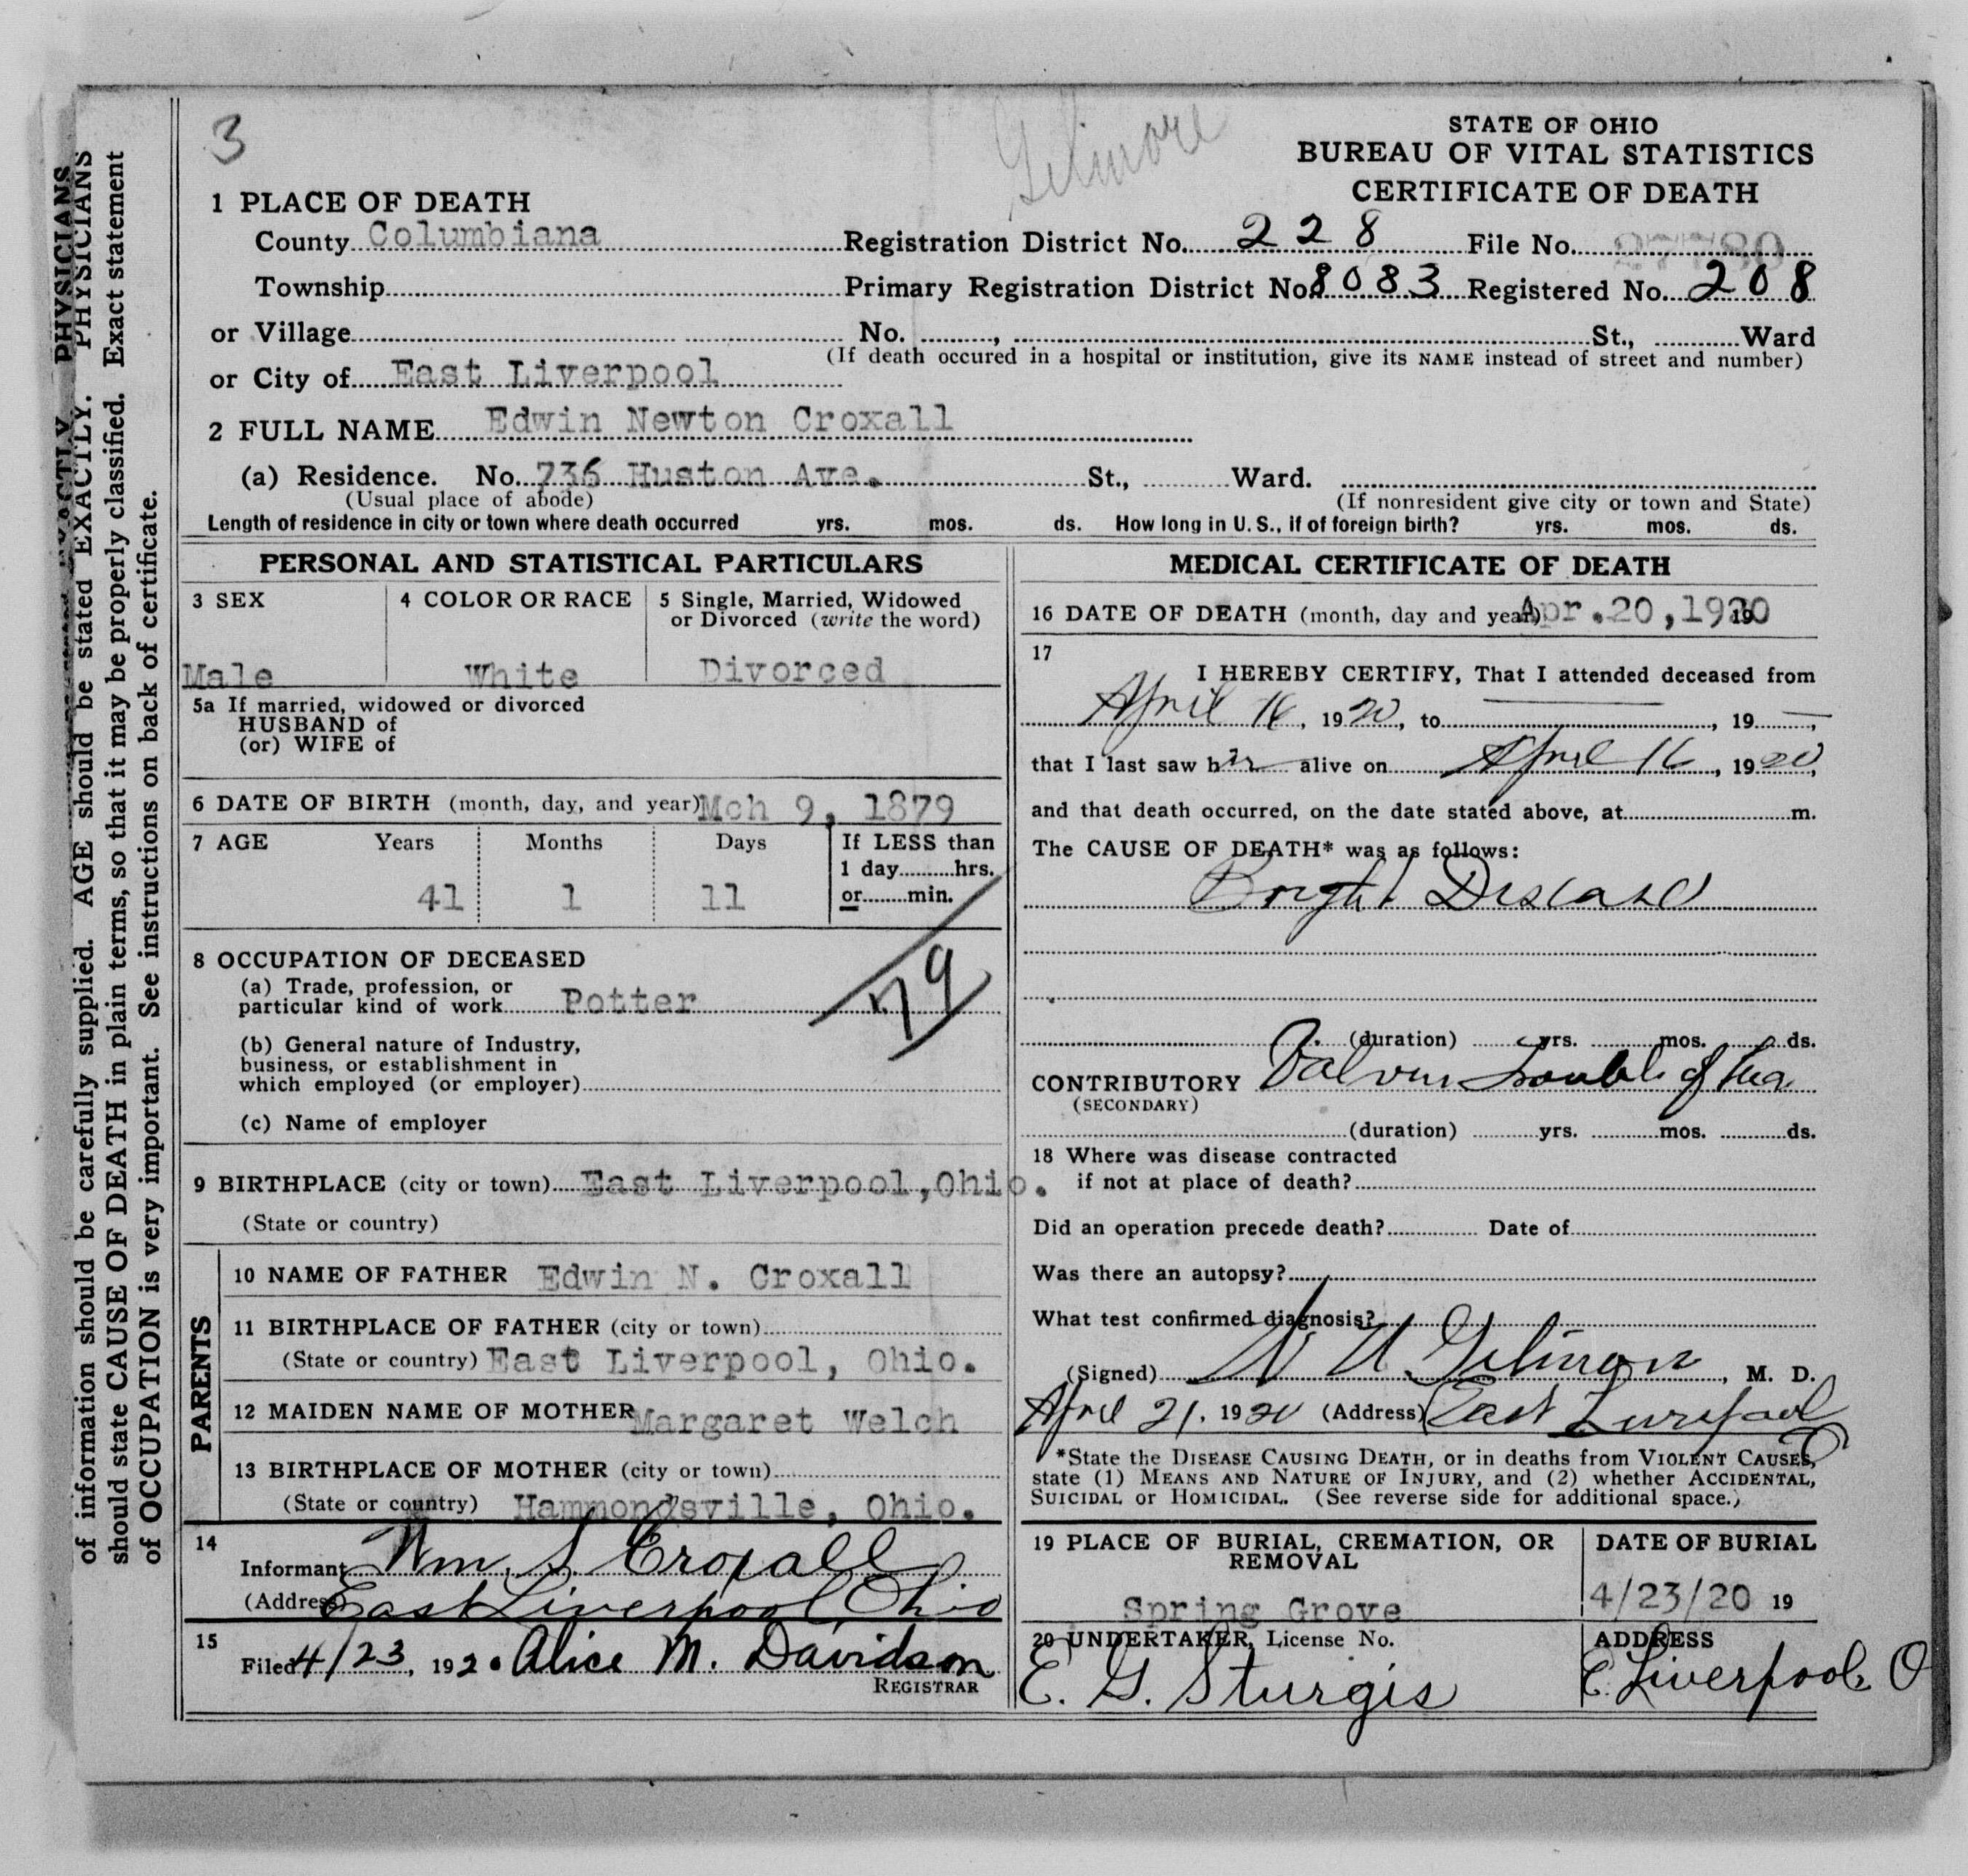 3
Gilmore
STATE OF OHIO
BUREAU OF VITAL STATISTICS
CERTIFICATE OF DEATH
1 PLACE OF DEATH
County Columbiana Registration District No. 228 File No. 27780
Township Primary Registration District No. 8083 Registered No. 208
or Village No. , St., Ward
(If death occured in a hospital or institution, give its NAME instead of street and number)
or City of East Liverpool
2 FULL NAME Edwin Newton Croxall
(a) Residence. No. 736 Huston Ave. St., Ward.
(Usual place of abode) (If nonresident give city or town and State)
Length of residence in city or town where death occurred yrs. mos. ds. How long in U. S., if of foreign birth? yrs. mos. ds.
PERSONAL AND STATISTICAL PARTICULARS
3 SEX 4 COLOR OR RACE 5 Single, Married, Widowed
or Divorced (write the word)
Male White Divorced
5a If married, widowed or divorced
HUSBAND of
(or) WIFE of
6 DATE OF BIRTH (month, day, and year) Mch 9, 1879
7 AGE Years Months Days If LESS than
1 day hrs.
41 1 11 or min.
79
8 OCCUPATION OF DECEASED
(a) Trade, profession, or
particular kind of work Potter
(b) General nature of Industry,
business, or establishment in
which employed (or employer)
(c) Name of employer
9 BIRTHPLACE (city or town) East Liverpool,Ohio.
(State or country)
PARENTS
10 NAME OF FATHER Edwin N. Croxall
11 BIRTHPLACE OF FATHER (city or town)
(State or country) East Liverpool, Ohio.
12 MAIDEN NAME OF MOTHER Margaret Welch
13 BIRTHPLACE OF MOTHER (city or town)
(State or country) Hammondsville, Ohio.
14
Informant Wm. S. Croxall
(Address) East Liverpool, Ohio
15
Filed 4/23, 1920 Alice M. Davidson
REGISTRAR
MEDICAL CERTIFICATE OF DEATH
16 DATE OF DEATH (month, day and year) Apr.20,1920 19
17
I HEREBY CERTIFY, That I attended deceased from
April 16, 1920, to , 19 ,
that I last saw h alive on April 16, 1920,
and that death occurred, on the date stated above, at m.
The CAUSE OF DEATH* was as follows:
Bright Disease
(duration) yrs. mos. ds.
CONTRIBUTORY trouble of
(SECONDARY)
(duration) yrs. mos. ds.
18 Where was disease contracted
if not at place of death?
Did an operation precede death? Date of
Was there an autopsy?
What test confirmed diagnosis?
(Signed) Gilmore, M. D.
April 21, 1920 (Address) East Liverpool
*State the DISEASE CAUSING DEATH, or in deaths from VIOLENT CAUSES,
state (1) MEANS AND NATURE OF INJURY, and (2) whether ACCIDENTAL,
SUICIDAL or HOMICIDAL. (See reverse side for additional space.)
19 PLACE OF BURIAL, CREMATION, OR
REMOVAL
Spring Grove
DATE OF BURIAL
4/23/20 19
20 UNDERTAKER, License No.
E. G. Sturgis
ADDRESS
E. Liverpool, O
PHYSICIANS
of information should be carefully supplied. AGE should be stated EXACTLY. PHYSICIANS
should state CAUSE OF DEATH in plain terms, so that it may be properly classified. Exact statement
of OCCUPATION is very important. See instructions on back of certificate.